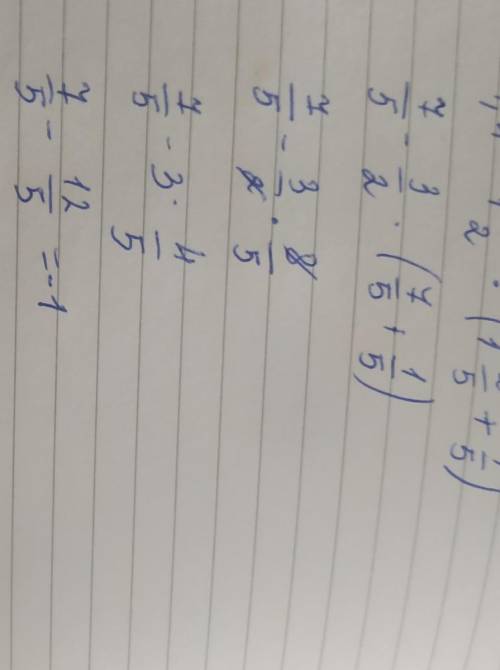 2 · (1 2/5 + 1/5)
7/5 - 3/2 · (7/5 + 1/5)
7/5 - 3/2 · 8/5
7/5 - 3 · 4/5
7/5 - 12/5 = -1